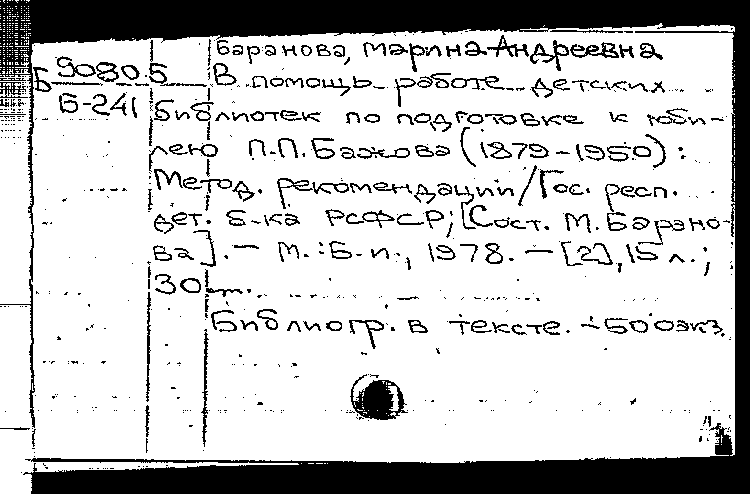 Баранова, Марина Андреевна
Б 90805 В помощь работе детских
Б-241 библиотек по подготовке к юби-
лею П.П.Бажова (1879-1950):
Метод. рекомендации/Гос. респ.
дет. б-ка РСФСР; [Сост. М.Барано-
ва]. - М.: Б.и., 1978. - [2], 15 л.;
30 см.
Библиогр. в тексте. - 500экз.